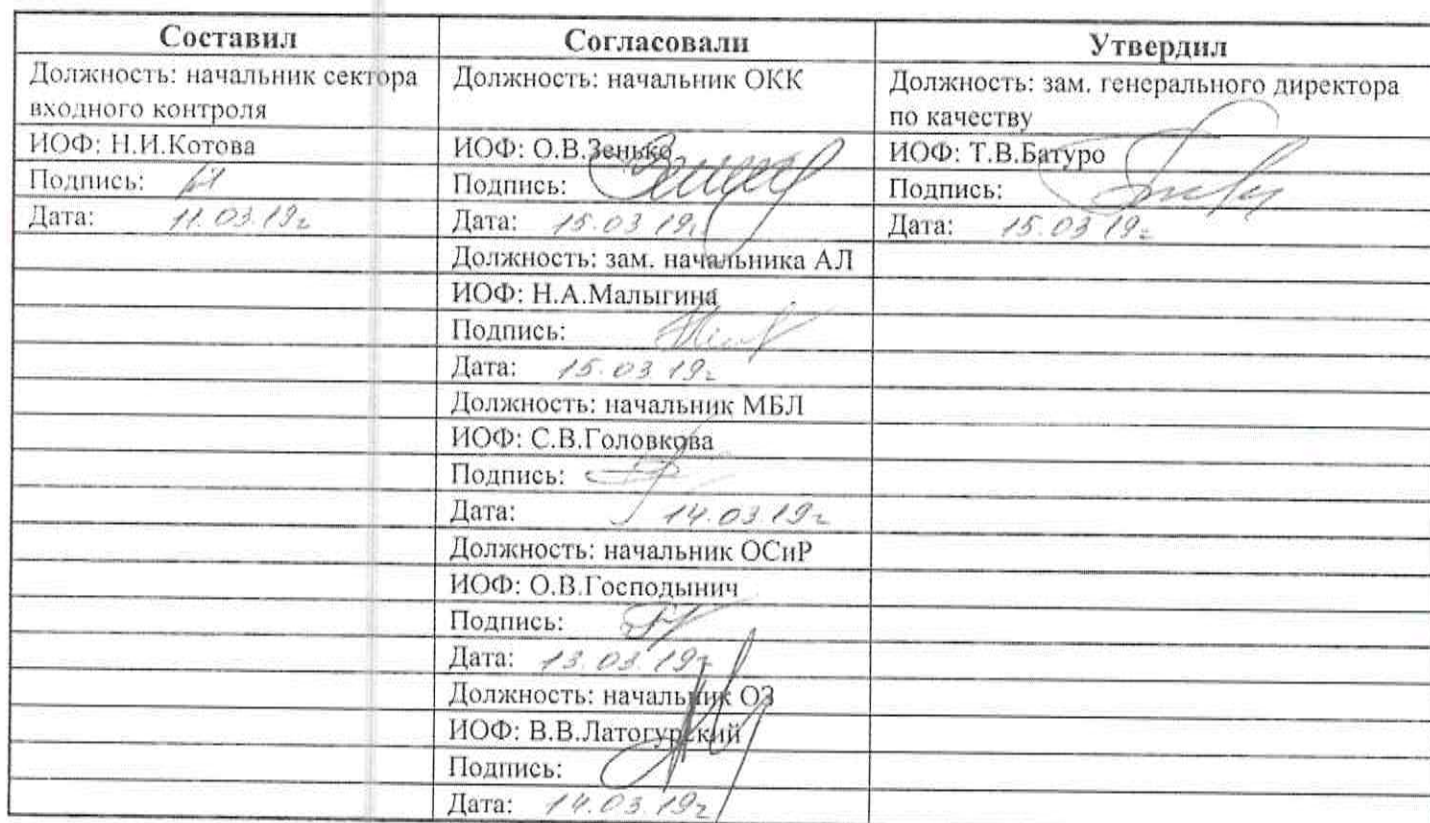 Составил Согласовали Утвердил
Должность: начальник сектора Должность: начальник ОКК Должность: зам. генерального директора
входного контроля по качеству
ИОФ: Н.И.Котова ИОФ: О.В.Зенько ИОФ: Т.В.Батуро
Подпись: Подпись: Подпись:
Дата: 11.03.19г Дата: 15.03.19г Дата: 15.03.19г
Должность: зам. начальника АЛ
ИОФ: Н.А.Малыгина
Подпись:
Дата: 15.03.19г
Должность: начальник МБЛ
ИОФ: С.В.Головкова
Подпись:
Дата: 14.03.19г
Должность: начальник ОСиР
ИОФ: О.В.Господынич
Подпись:
Дата: 13.03.19г
Должность: начальник ОЗ
ИОФ: В.В.Латогурский
Подпись:
Дата: 14.03.19г